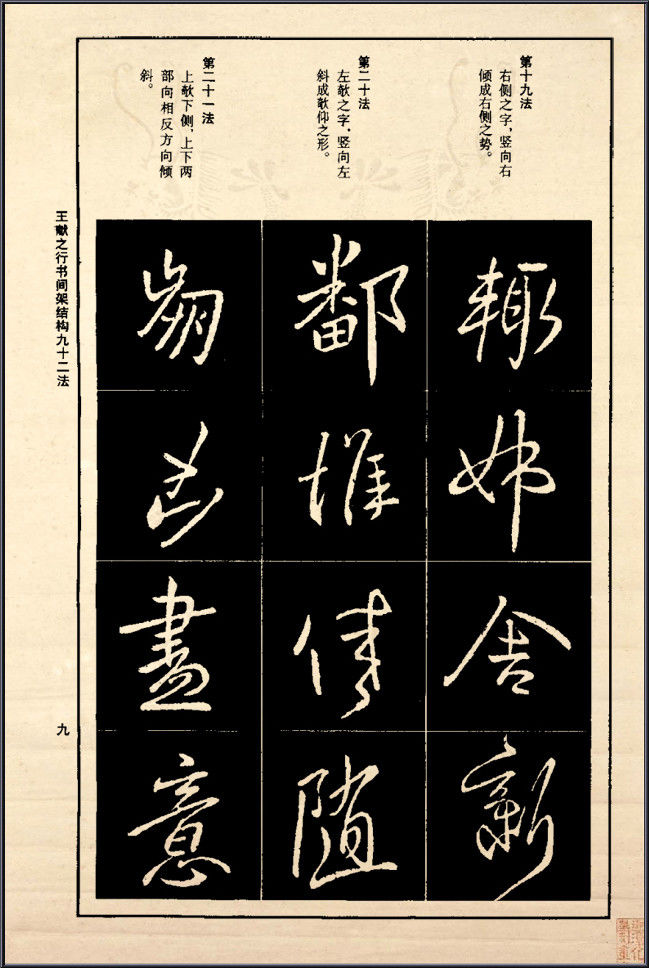 第十九法
右侧之字，竖向右
倾成右侧之势。
第二十法
左欹之字，竖向左
斜成欹仰之形。
第二十一法
上欹下侧，上下两
部向相反方向倾
斜。
輒
姊
舍
新
鄱
堆
随
盡
意
王献之行书间架结构九十二法
九